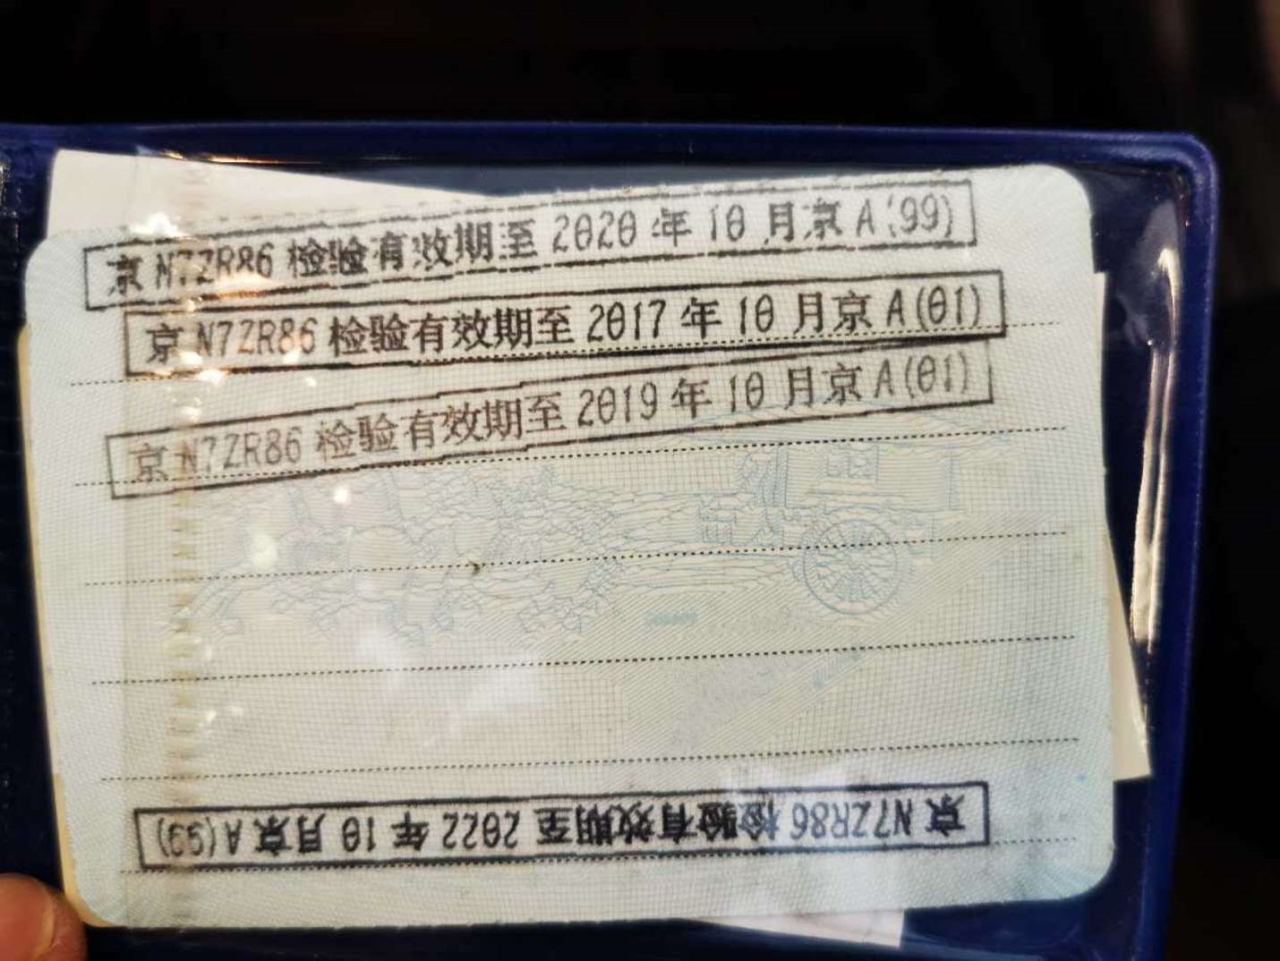 京 N7ZR86 检验有效期至 2020 年 10 月京 A(99)
京 N7ZR86 检验有效期至 2017 年 10 月京 A(01)
京 N7ZR86 检验有效期至 2019 年 10 月京 A(01)
京 N7ZR86 检验有效期至 2022 年 10 月京 A(99)